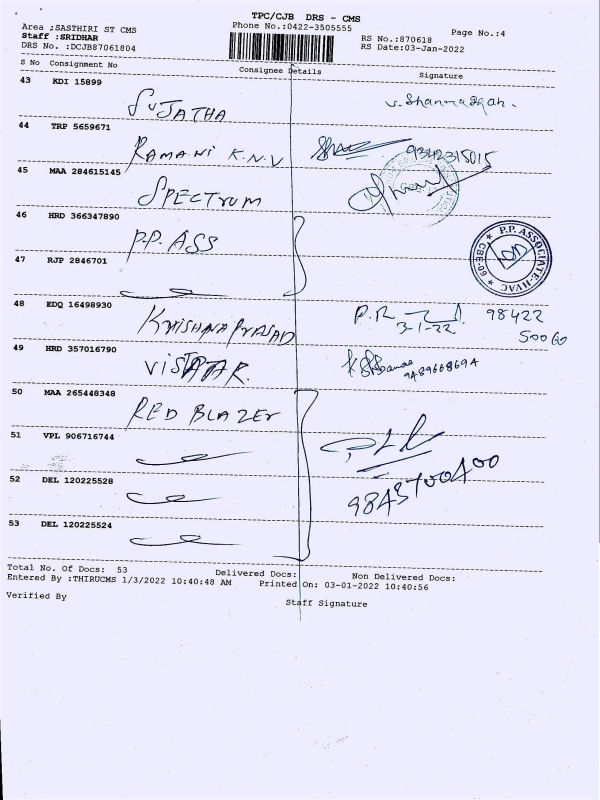 TPC/CJB DRS - CMS
Area :SASTHIRI ST CMS
Phone No.:0422-3505555
Page No.:4
Staff :SRIDHAR
RS No.:870618
DRS No. :DCJB87061804
RS Date:03-Jan-2022
S No Consignment No Consignee Details Signature
43 KDI 15899
SUJATHA
44 TRP 5659671
RAMANI K.N.V 9342315015
45 MAA 284615145
SPECTRUM
46 HRD 366347890
P.P. ASS
P.P. ASSOCIATE-HVAC
47 RJP 2846701
48 EDQ 16498930
KRISHNAPRASAD
3-1-22 98422
49 HRD 357016790
9489668694
50 MAA 265448348
RED BLAZER
51 VPL 906716744
9843700400
52 DEL 120225528
53 DEL 120225524
Total No. Of Docs: 53 Delivered Docs: Non Delivered Docs:
Entered By :THIRUCMS 1/3/2022 10:40:48 AM Printed On: 03-01-2022 10:40:56
Verified By
Staff Signature